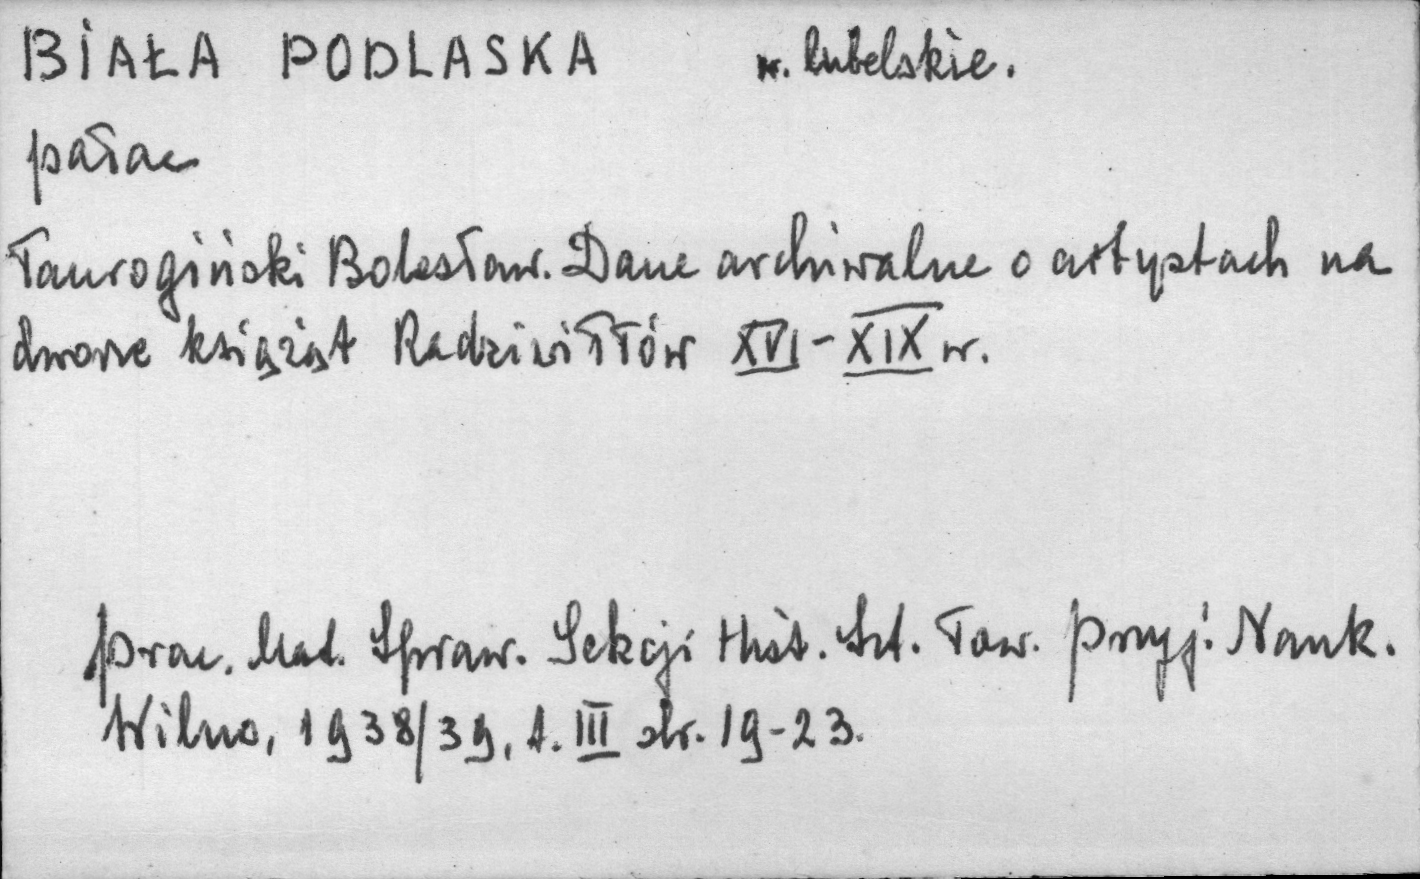 BIAŁA PODLASKA w. lubelskie.
pałac
Taurogiński Bolesław. Dane archiwalne o artystach na
dworze książąt Radziwiłłów XVI-XIX w.
prac. Mat. Spraw. Sekcji Hist. Szt. Tow. Przyj. Nauk.
Wilno, 1938/39, t. III str. 19-23.